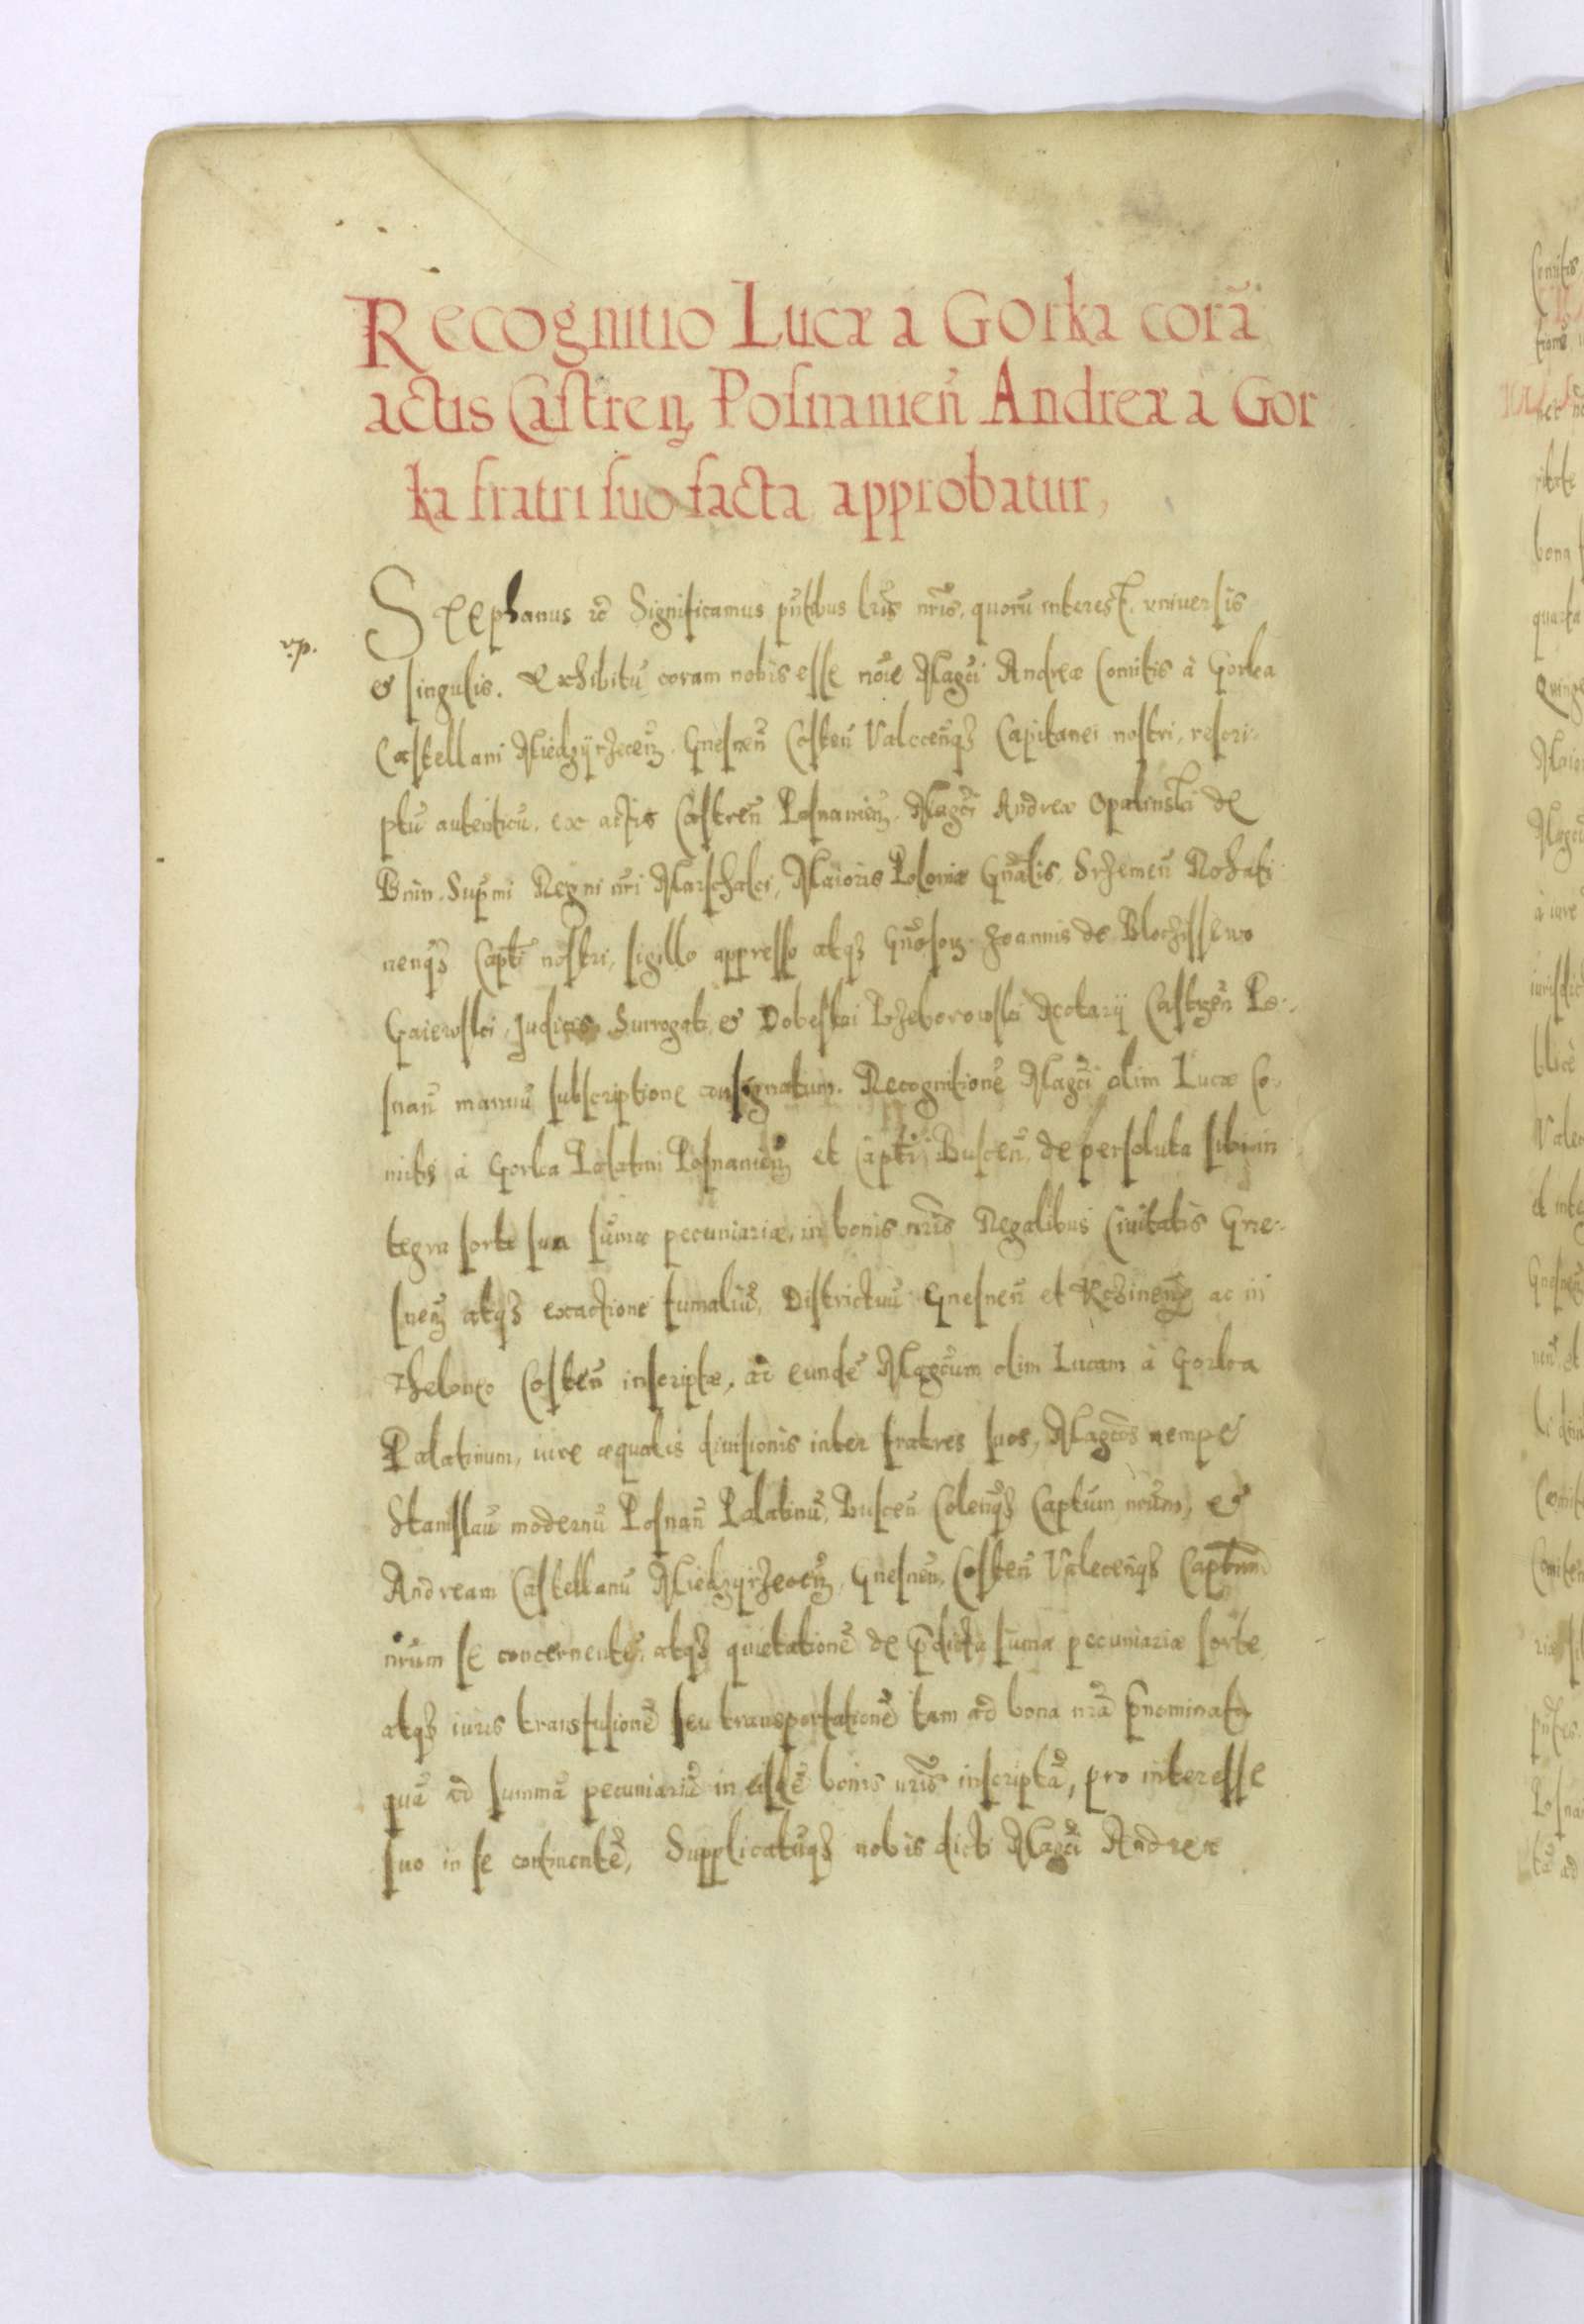 Recognitio Lucæ a Gorka corã
actis Castreñ Posnanieñ Andreæ à Gor
ka fratri suo facta approbatur,
Stephanus rc̃ Significamus pñtibus lrĩs nrĩs, quorũ interest, vniuersis
v.p.
et singulis. Exhibitũ coram nobis esse noĩe Magci Andreæ Comitis à Gorka
Castellani Miedzyrzeceñ. Gnesneñ Costeñ Valceñqȝ Capitanei nostri, rescri-
ptũ autenticũ, ex actis Castreñ Posnanieñ. Magci Andreæ Opalinski de
Bnin. Supmi Regni nri Marschalci, Maioris Poloniæ Gñalis, Srzemeñ Rohati
nenqȝ Capti nostri, sigillo appresso atqȝ Gñosoɽ Joannis de Blociszewo
Gaiewski, Judicis Surrogati, et Dobeslai Wzeborowski Notarij Castreñ Po-
snañ manuũ subscriptione consignatum. Recognitionẽ Magci olim Lucæ Co-
mitis à Gorka Palatini Posnanieñ et Capti Busceñ, de persoluta sibi in
tegra sorte sua sũmæ pecuniariæ, in bonis nrĩs Regalibus Ciuitatis Gne-
sneñ atqȝ exactione fumaliũ, Districtuũ Gnesneñ et Kczineñ ac in
Theloneo Costeñ inscriptæ, ad eundẽ Magcum olim Lucam à Gorka
Palatinum, iure æqualis diuisionis inter fratres suos, Magcos nempe
Stanislaũ modernũ Posnañ Palatinũ, Busceñ Coleñqȝ Captum nrum, et
Andream Castellanũ Miedzyrzeceñ, Gnesneñ, Costeñ Valeceñqȝ Captum
nrum se concernentẽ, atqȝ quietationẽ de p̃dicta sũmæ pecuniariæ sorte
atqȝ iuris transfusionẽ seu transportationẽ tam ad bona nrã p̃nominata
quã ad summã pecuniariã in eisdẽ bonis nrĩs inscriptã, pro interesse
suo in se continentẽ, Supplicatũqȝ nobis dicti Magci Andreæ